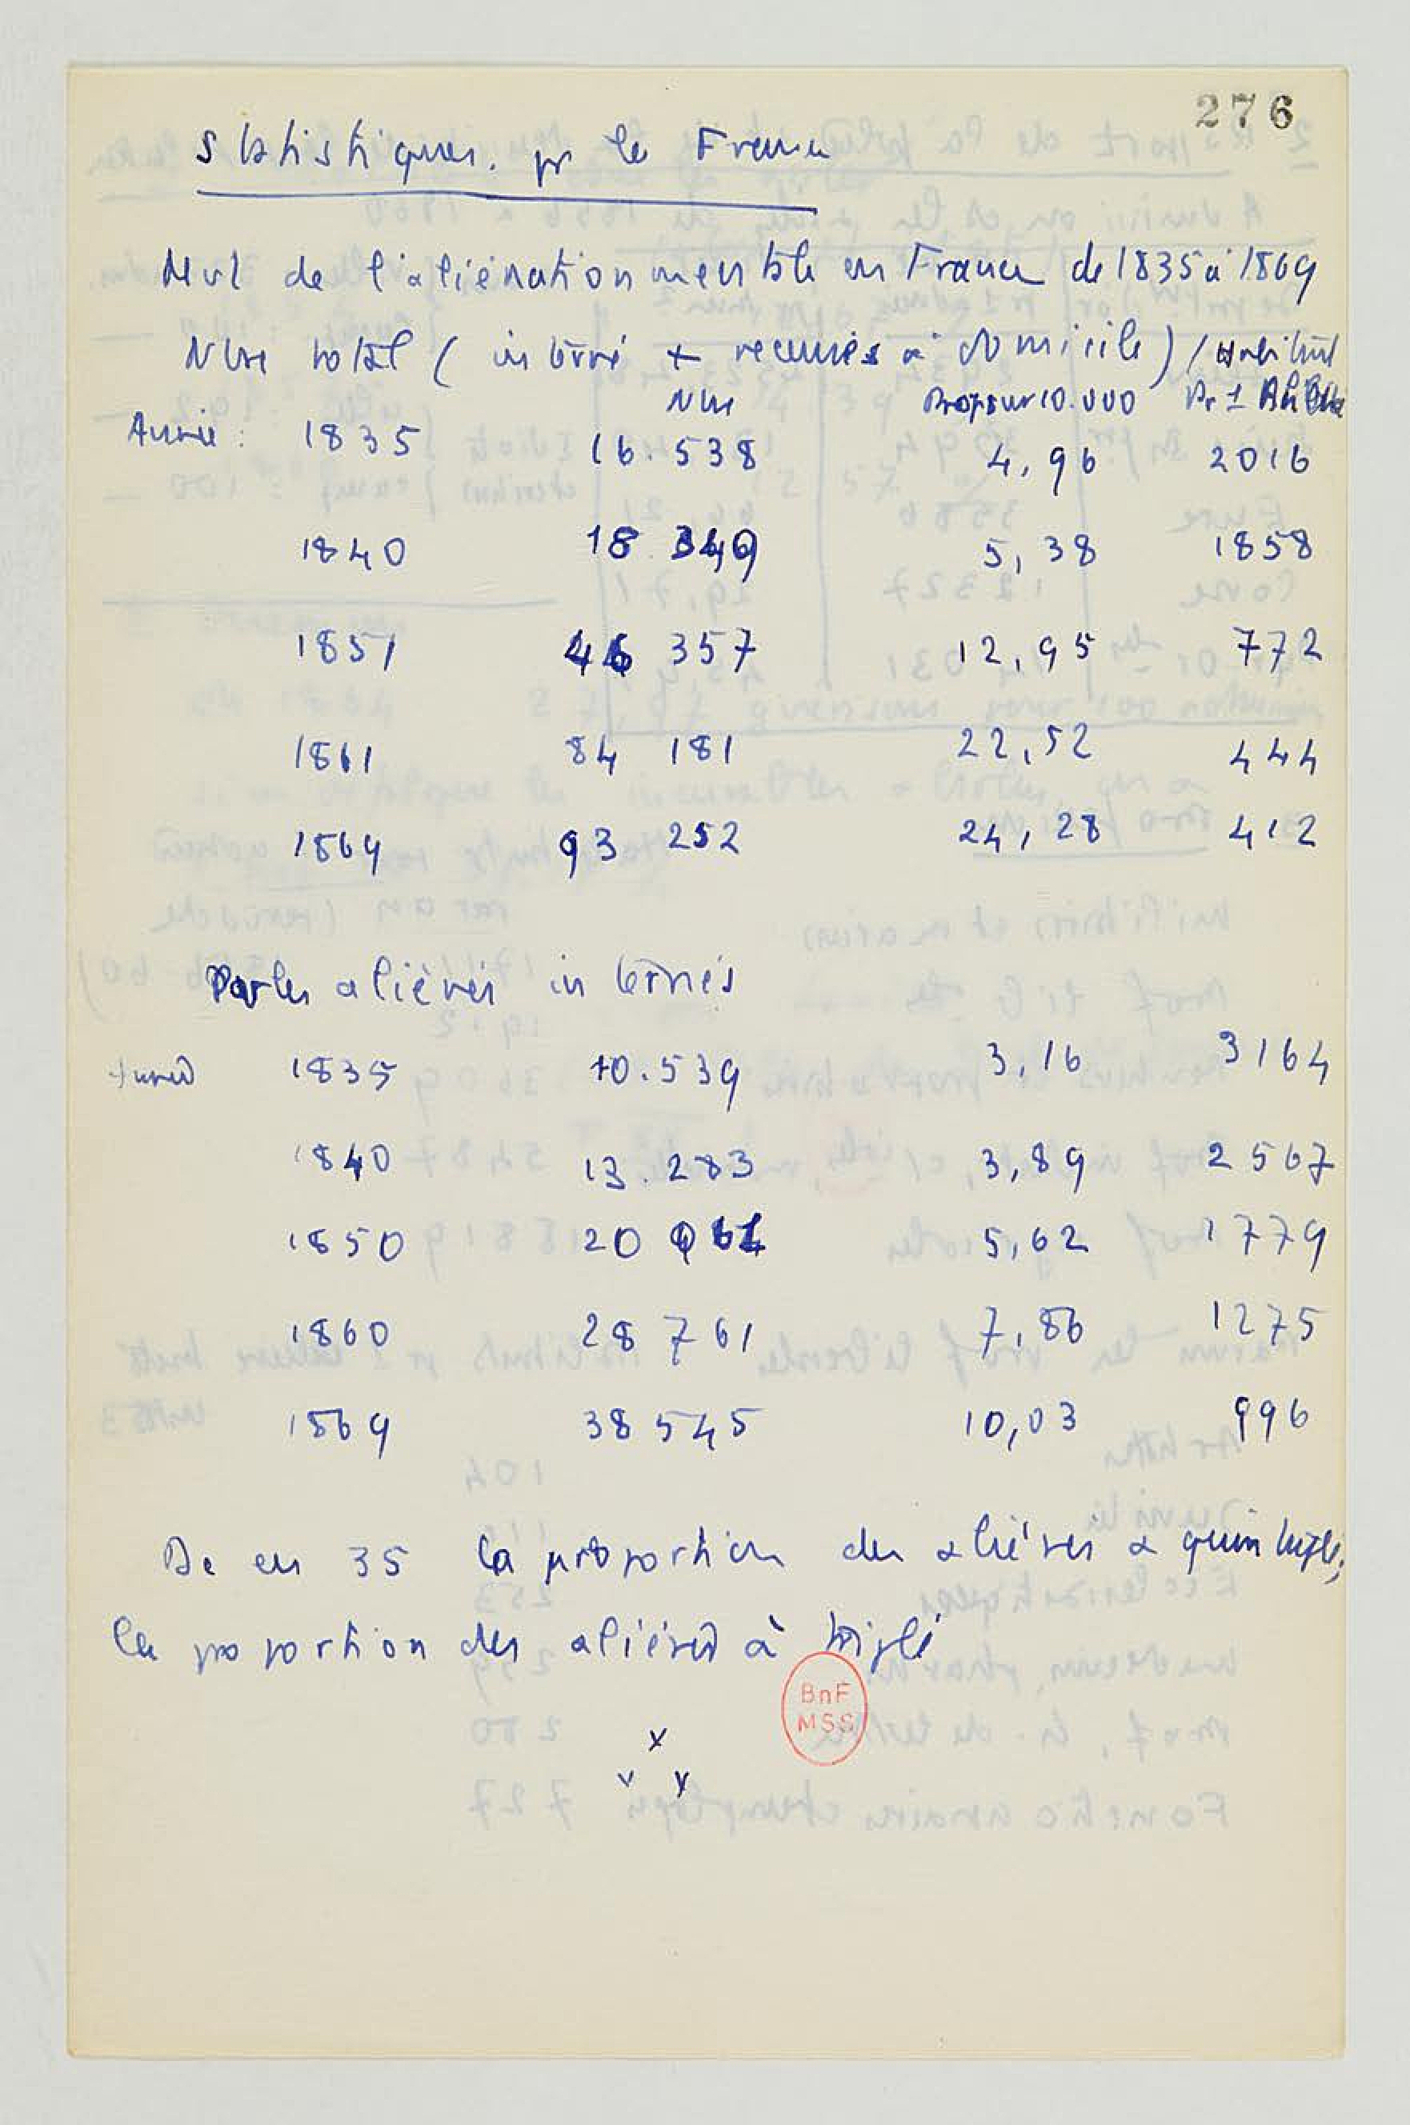 276
Statistiques. pr la France
Mvt de l'aliénation mentale en France de 1835 à 1869
Nbre total ( interné + recensés à domicile ) / Habitant
Nbre Propor sur 10.000 Pr 1 Aliéné
Année : 1835 16.538 4,96 2016
1840 18 349 5,38 1858
1851 46 357 12,95 772
1861 84 181 22,52 444
1869 93 252 24,28 412
Par les aliénés internés
Année 1835 10.539 3,16 3164
1840 13.283 3,89 2567
1850 20 061 5,62 1779
1860 28 761 7,86 1275
1869 38 545 10,03 996
De en 35 la proportion des aliénés a quintuplé;
la proportion des aliénés à triplé
x
v y
BnF
MSS